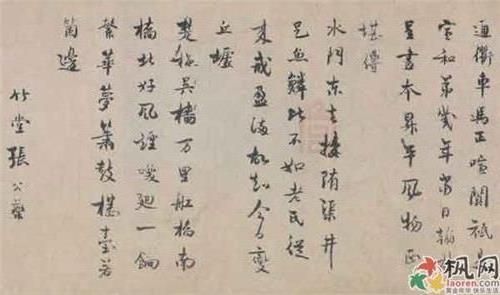 通衢車馬正喧闐祇是
宣和第幾年當日翰林
呈畫本昇平風物正
堪傳
水門東去接隋渠井
邑魚鱗比不如老氏從
來戒盈滿故知今日變
丘墟
楚柂吳檣万里舡橋南
橋北好風煙喚廻一餉
繁華夢簫鼓樓臺若
箇邊
竹堂張公藥
枫网
laoren.com
黄金年华 快乐生活